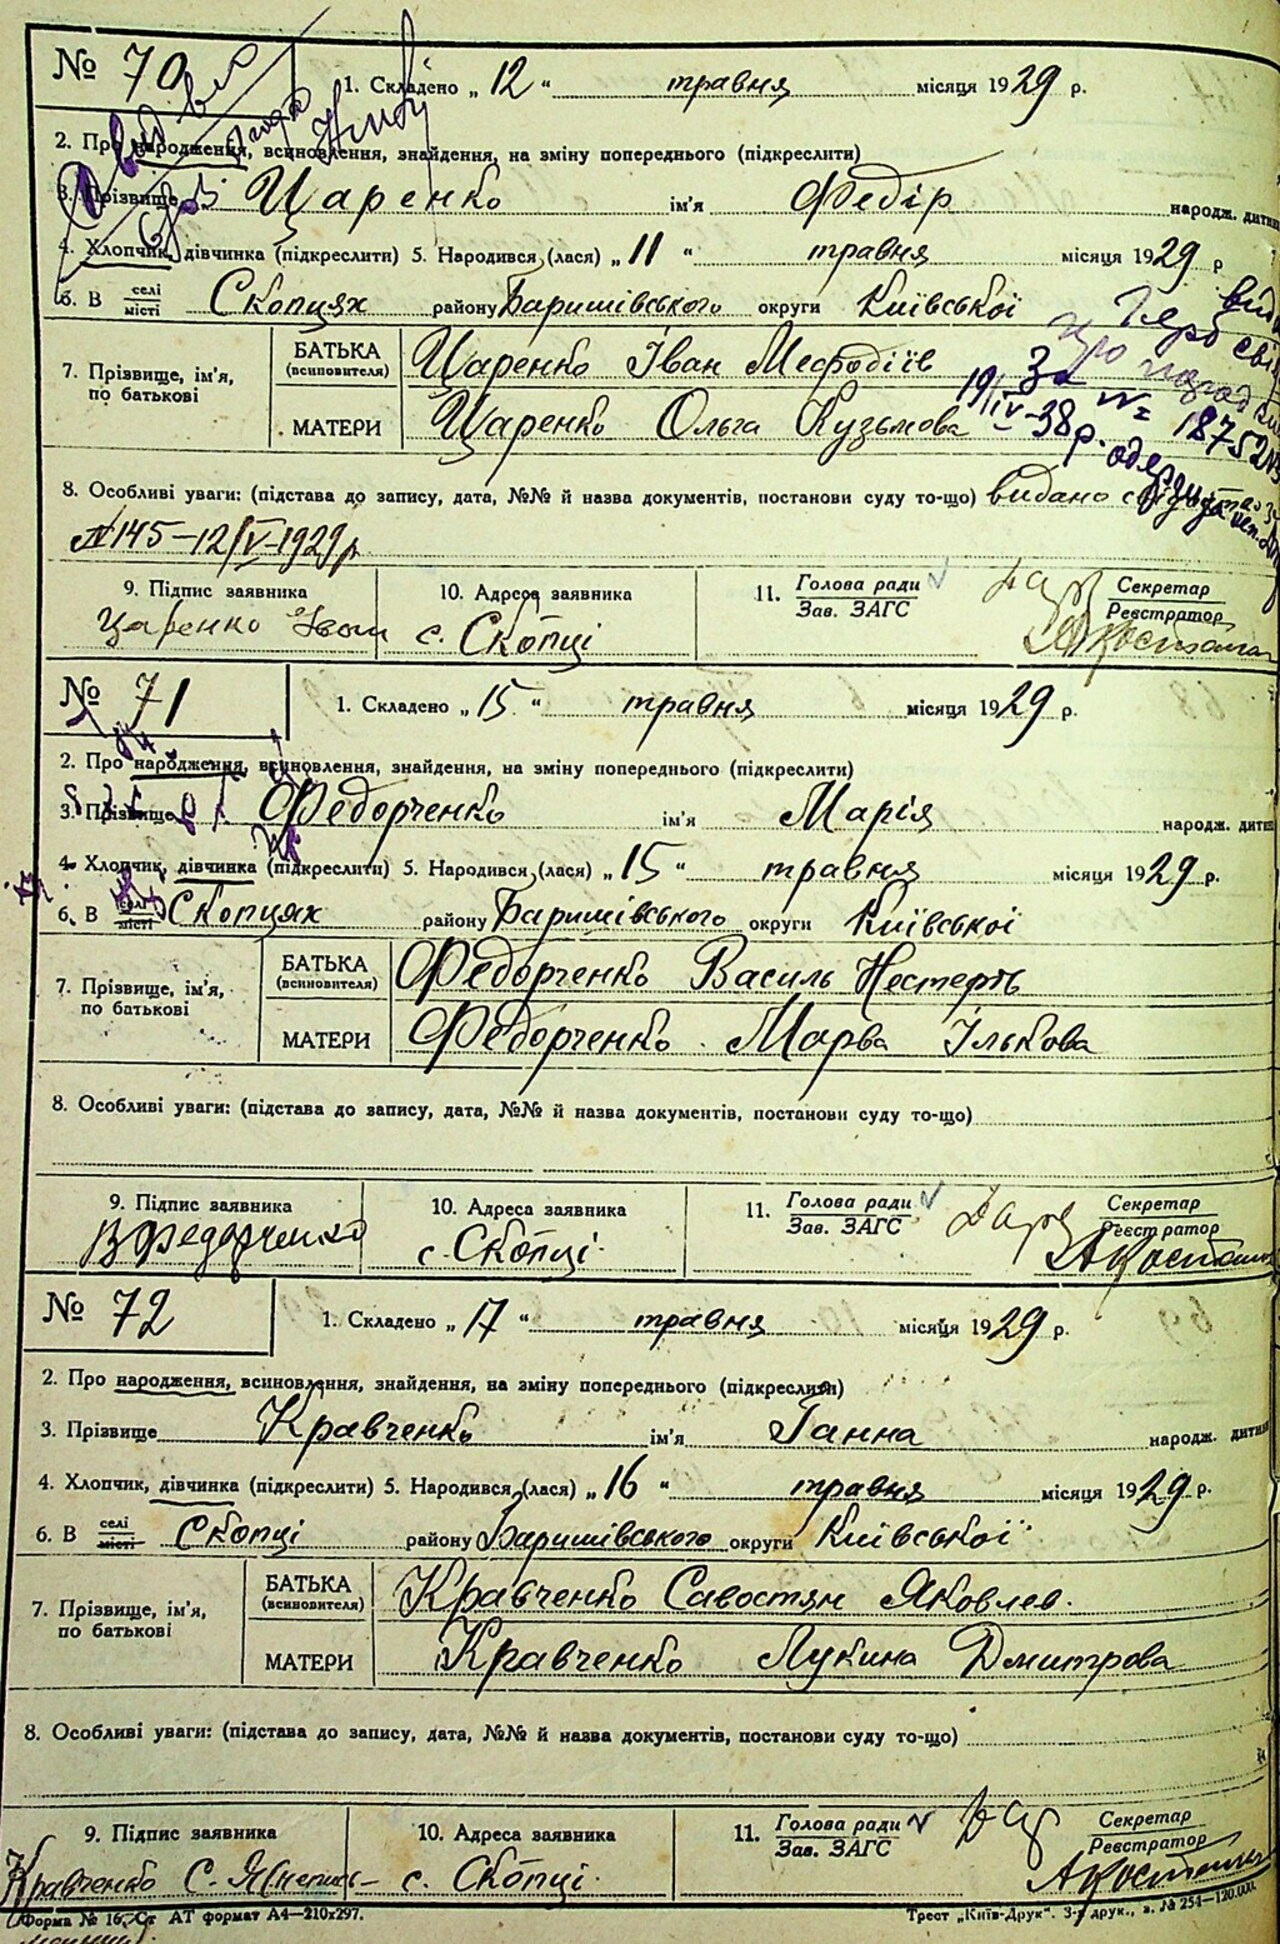 № 70 1. Складено „ 12 “ травня місяця 1929 р.
2. Про народження, всиновлення, знайдення, на зміну попереднього (підкреслити)
3. Прізвище Царенко ім'я Федір народж. дитини
4. Хлопчик, дівчинка (підкреслити) 5. Народився (лася) „ 11 “ травня місяця 1929 р
6. В селі місті Скопцях району Баришівського округи Київської
7. Прізвище, ім'я, по батькові
БАТЬКА (всиновителя) Царенко Іван Мефодіїв
МАТЕРИ Царенко Ольга Кузьмова
За № 187524
19/IV-38 р.
8. Особливі уваги: (підстава до запису, дата, №№ й назва документів, постанови суду то-що) видано
№145—12/V-1929 р.
9. Підпис заявника 10. Адреса заявника 11. Голова ради Зав. ЗАГС Секретар Реєстратор
Царенко Іван с. Скопці
№ 71 1. Складено „ 15 “ травня місяця 1929 р.
2. Про народження, всиновлення, знайдення, на зміну попереднього (підкреслити)
3. Прізвище Федорченко ім'я Марія народж. дитини
4. Хлопчик, дівчинка (підкреслити) 5. Народився (лася) „ 15 “ травня місяця 1929 р.
6. В селі місті Скопцях району Баришівського округи Київської
7. Прізвище, ім'я, по батькові
БАТЬКА (всиновителя) Федорченко Василь Нестерів
МАТЕРИ Федорченко Марва Ількова
8. Особливі уваги: (підстава до запису, дата, №№ й назва документів, постанови суду то-що)
9. Підпис заявника 10. Адреса заявника 11. Голова ради Зав. ЗАГС Секретар Реєстратор
В Федорченко с. Скопці
№ 72 1. Складено „ 17 “ травня місяця 1929 р.
2. Про народження, всиновлення, знайдення, на зміну попереднього (підкреслити)
3. Прізвище Кравченко ім'я Ганна народж. дитини
4. Хлопчик, дівчинка (підкреслити) 5. Народився (лася) „ 16 “ травня місяця 1929 р.
6. В селі місті Скопці району Баришівського округи Київської
7. Прізвище, ім'я, по батькові
БАТЬКА (всиновителя) Кравченко Савостян Яковлев.
МАТЕРИ Кравченко Лукина Дмитрова
8. Особливі уваги: (підстава до запису, дата, №№ й назва документів, постанови суду то-що)
9. Підпис заявника 10. Адреса заявника 11. Голова ради Зав. ЗАГС Секретар Реєстратор
Кравченко С. Я с. Скопці
Форма № 16. Ст АТ формат А4—210х297. Трест „Київ-Друк“. 3-я друк., з. № 254—120.000.